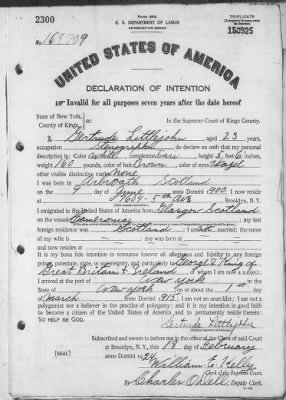 2300
Form 2202
U. S. DEPARTMENT OF LABOR
NATURALIZATION SERVICE
TRIPLICATE
150925
No. 163709
UNITED STATES OF AMERICA
DECLARATION OF INTENTION
Invalid for all purposes seven years after the date hereof
State of New York,
County of Kings, ss:
In the Supreme Court of Kings County.
I, Gertrude Littlejohn, aged 23 years,
occupation Stenographer, do declare on oath that my personal
description is: Color white, complexion fair, height 5 feet inches,
weight 160 pounds, color of hair Brown, color of eyes Hazel
other visible distinctive marks None
I was born in Arbroath Scotland
on the day of June, anno Domini 1900; I now reside
at 7609 - 5th Ave Brooklyn, N. Y.
I emigrated to the United States of America from Glasgow Scotland
on the vessel Cameronia; my last
foreign residence was Scotland; I am not married; the name
of my wife is; she was born at
and now resides at
It is my bona fide intention to renounce forever all allegiance and fidelity to any foreign
prince, potentate, state, or sovereignty, and particularly to George V King of
Great Britain & Ireland, of whom I am now a subject;
I arrived at the port of New York, in the
State of New York, on or about the 1 day
of March, anno Domini 1915; I am not an anarchist; I am not a
polygamist nor a believer in the practice of polygamy; and it is my intention in good faith
to become a citizen of the United States of America and to permanently reside therein:
SO HELP ME GOD.
Gertrude Littlejohn
Subscribed and sworn to before me in the office of the Clerk of said Court
at Brooklyn, N. Y., this 28 day of February
anno Domini 1924
[SEAL]
William E. Kelly
Clerk of the Supreme Court.
By Charles
Clerk.